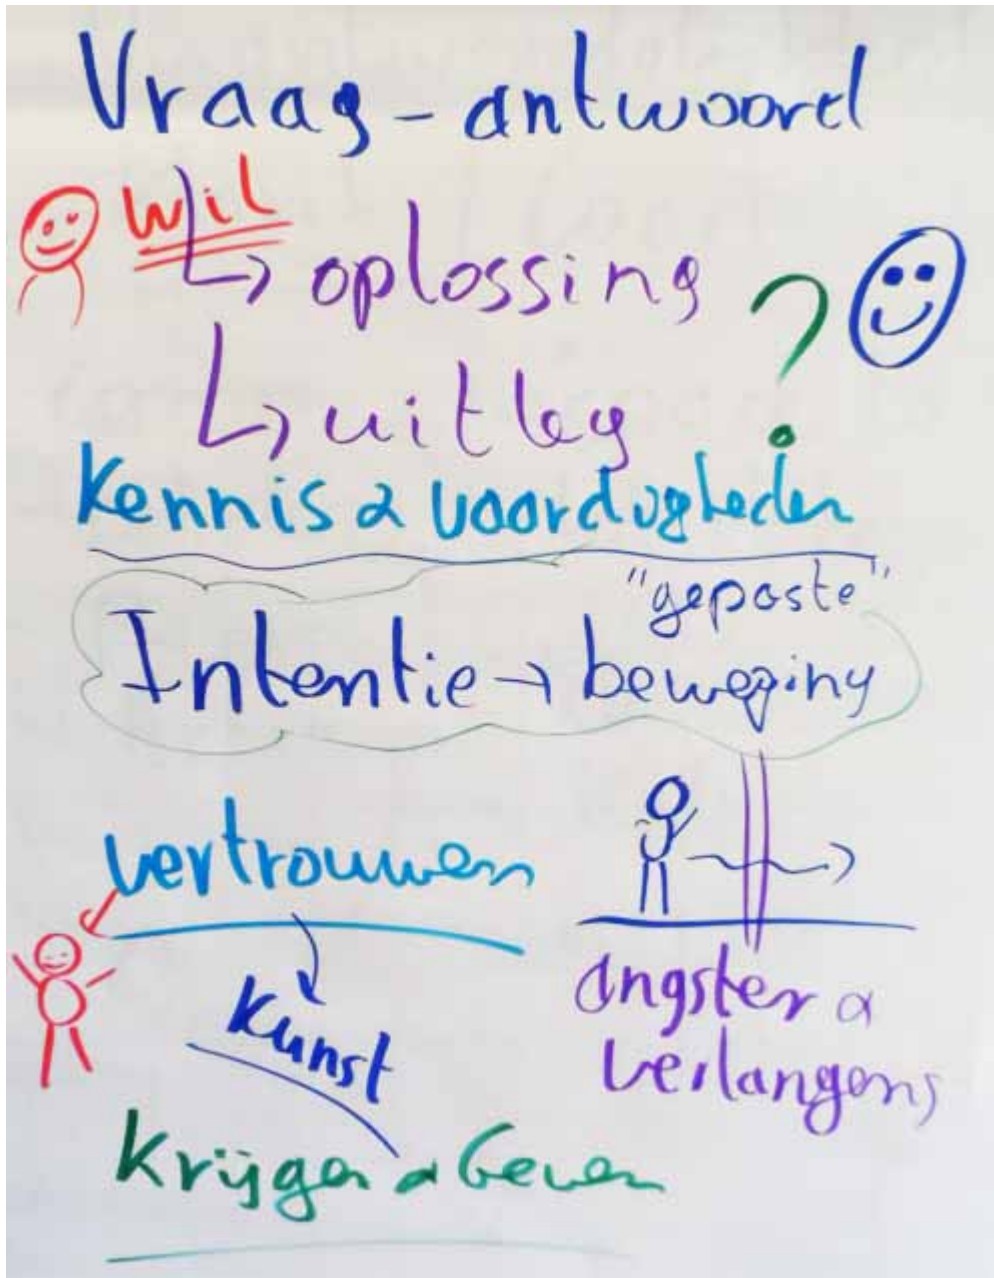 Vraag - antwoord
wil
↳ oplossing ?
↳ uitleg
Kennis & vaardigheden
"gepaste"
Intentie → beweging
vertrouwen
angsten &
verlangens
Kunst
Krijgen & Geven